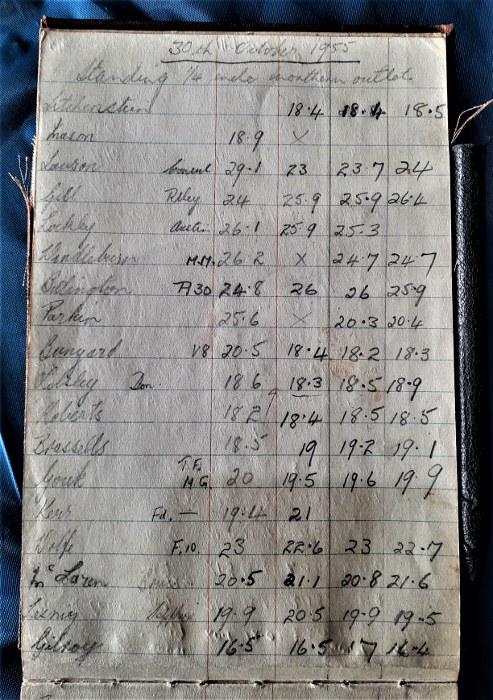 30th October 1955
Standing 1/4 mile northern outlet
Litchenstein 18.4 18.4 18.5
Mason 18.9 X
Lawson 29.1 23 23.7 24
Gill Riley 24 25.9 25.9 26.4
Lockley Austin 26.1 25.9 25.3
M.M. 26.2 X 24.7 24.7
A30 24.8 26 26 25.9
Parkin 25.6 X 20.3 20.4
Bunyard V8 20.5 18.4 18.2 18.3
Don. 18.6 18.3 18.5 18.9
Roberts 18.2 18.4 18.5 18.5
Brassells 18.5 19 19.2 19.1
T.F.
M.G. 20 19.5 19.6 19.9
Kerr Fd. — 19.4 21
Wolfe F.10. 23 22.6 23 22.7
McLaren 20.5 21.1 20.8 21.6
19.9 20.5 19.9 19.5
Gilroy 16.5 16.5 17 16.4